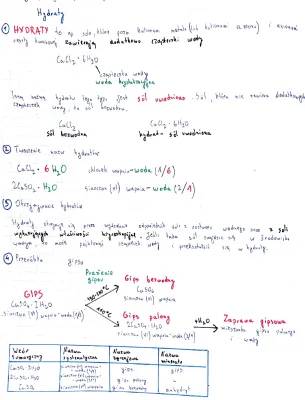 Hydraty
① HYDRATY to są sole, które poza kationem metalu (lub kationem amonu) i anionem
reszty kwasowej zawierają dodatkowo cząsteczki wody
CaCl₂ · 6H₂O
cząsteczki wody
woda hydratacyjna
Inną nazwą hydratu tego typu jest sól uwodniona. Sól, która nie zawiera dodatkowych
cząsteczek wody, to sól bezwodna.
CaCl₂ CaCl₂ · 6H₂O
sól bezwodna hydrat - sól uwodniona
② Tworzenie nazw hydratów
CaCl₂ · 6 H₂O chlorek wapnia-woda (1/6)
2CaSO₄ · H₂O siarczan (VI) wapnia-woda (2/1)
③ Otrzymywanie hydratów
Hydraty się przez soli z roztworów wodnych oraz z soli
właściwości higroskopijne. Jeśli taka sól znajdzie się w środowisku
wodnym, to może cząsteczki wody i przekształcić się w hydraty.
④ Przeróbka gipsu
Prażenie
gipsu
Gips bezwodny
CaSO₄
siarczan (VI) wapnia
GIPS
CaSO₄ · 2H₂O
siarczan (VI) wapnia-woda (1/2)
Gips palony
2CaSO₄ · H₂O
siarczan (VI) wapnia-woda (2/1)
+H₂O
Zaprawa gipsowa
mieszanka gipsu palonego
i wody
Wzór sumaryczny Nazwa systematyczna Nazwa zwyczajowa Nazwa minerału
CaSO₄ · 2H₂O siarczan (VI) wapnia-woda (1/2) gips gips
2CaSO₄ · H₂O siarczan (VI) wapnia-woda (2/1) gips palony -
CaSO₄ siarczan (VI) wapnia anhydryt